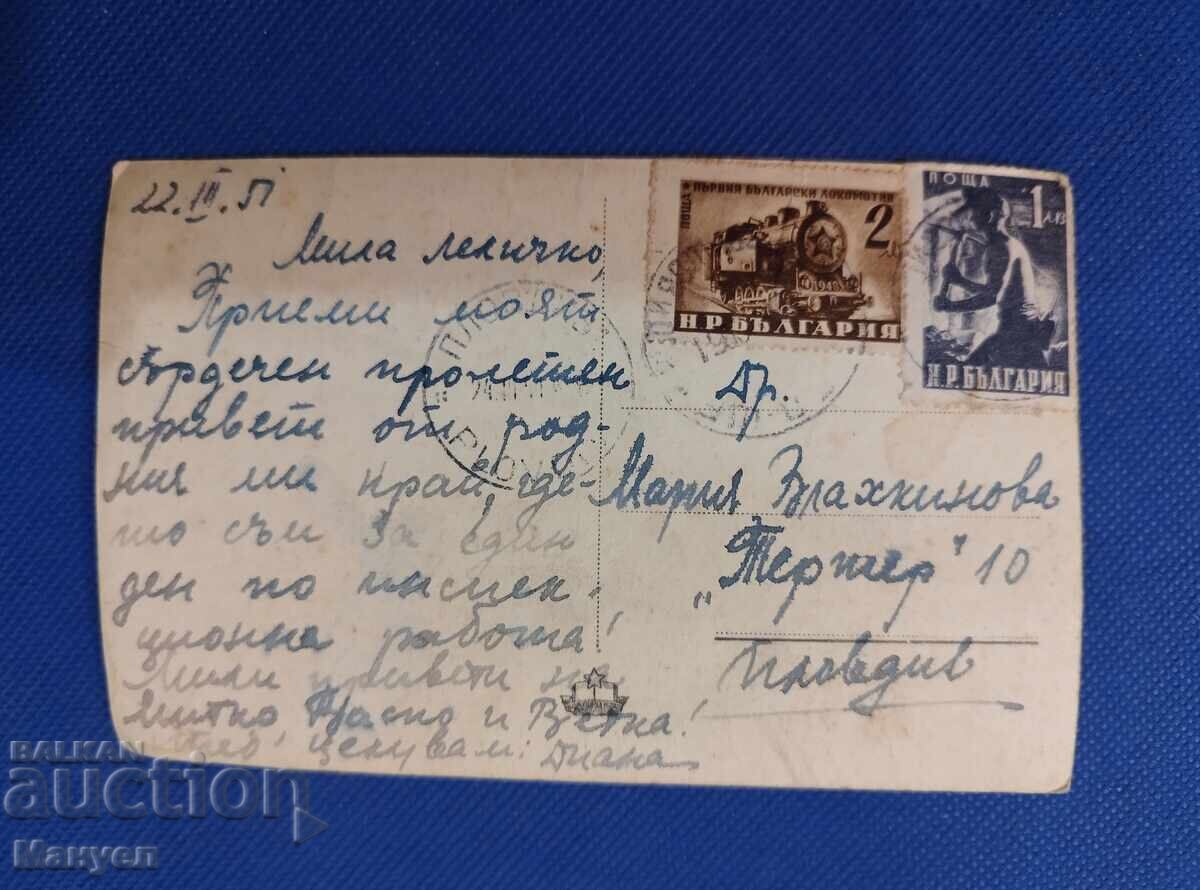 22.III.51
Мила леличко,
Приеми моят
сърдечен пролетен
привет от род-
ния ми край, где-
то съм за един
ден по инспек-
ционна работа!
Мили привети на
Митко Краско и Цветка!
целувам: Диана
ПЪРВИЯ БЪЛГАРСКИ ЛОКОМОТИВ
ПОЩА
2 ЛВ
1948
Н Р БЪЛГАРИЯ
ПОЩА
1 ЛВ
Н.Р. БЪЛГАРИЯ
ПЛОВДИВ
Др.
Мария Влахкинова
"Терter" 10
Пловдив
BALKAN
auction
Мануел